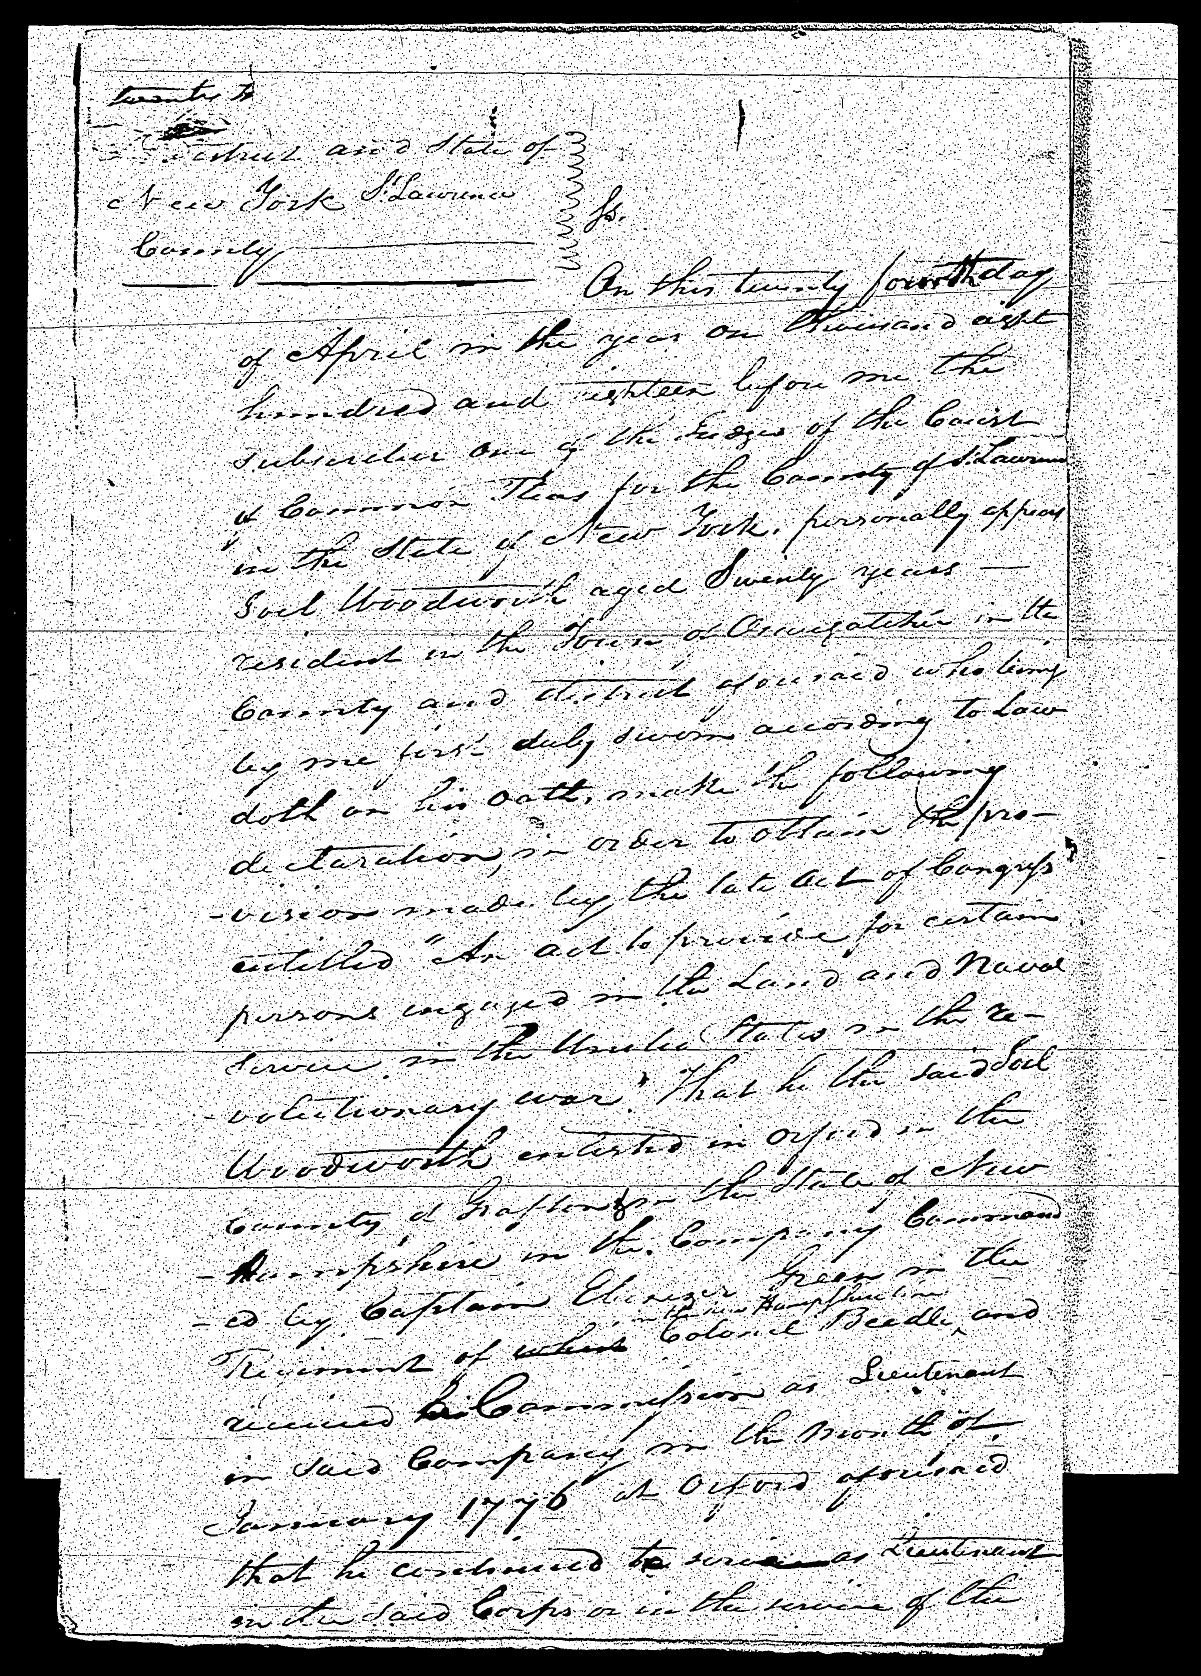 twenty
District and State of
New York St Lawrence
County
Ss.
On this twenty fourth day
of April in the year on thousand eight
hundred and eighteen before me the
subscriber one of the Judges of the Court
of Common Pleas for the County of St. Lawrence
in the State of New York. personally appears
Soil Woodworth aged Seventy years —
resident in the Town of Oswegatchie in the
County and district aforesaid who being
by me first duly sworn according to Law
doth on his oath, make the following
declaration, in order to obtain the pro-
-vision made by the late act of Congress
entitled "An act to provide for certain
persons engaged in the Land and Naval
Service in the United States in the re-
-volutionary war" That he the said Soil
Woodworth enlisted in Orford in the
County of Grafton in the State of New
-Hampshire in the Company Command
-ed by Captain Ebenezer Green in the
in the new Hampshire line
Regiment of which Colonel Beedle, and
received his Commission as Lieutenant
in said Company in the month of.
January 1776 at Orford aforesaid
that he continued to serve as Lieutenant
in the said Corps or in the service of the